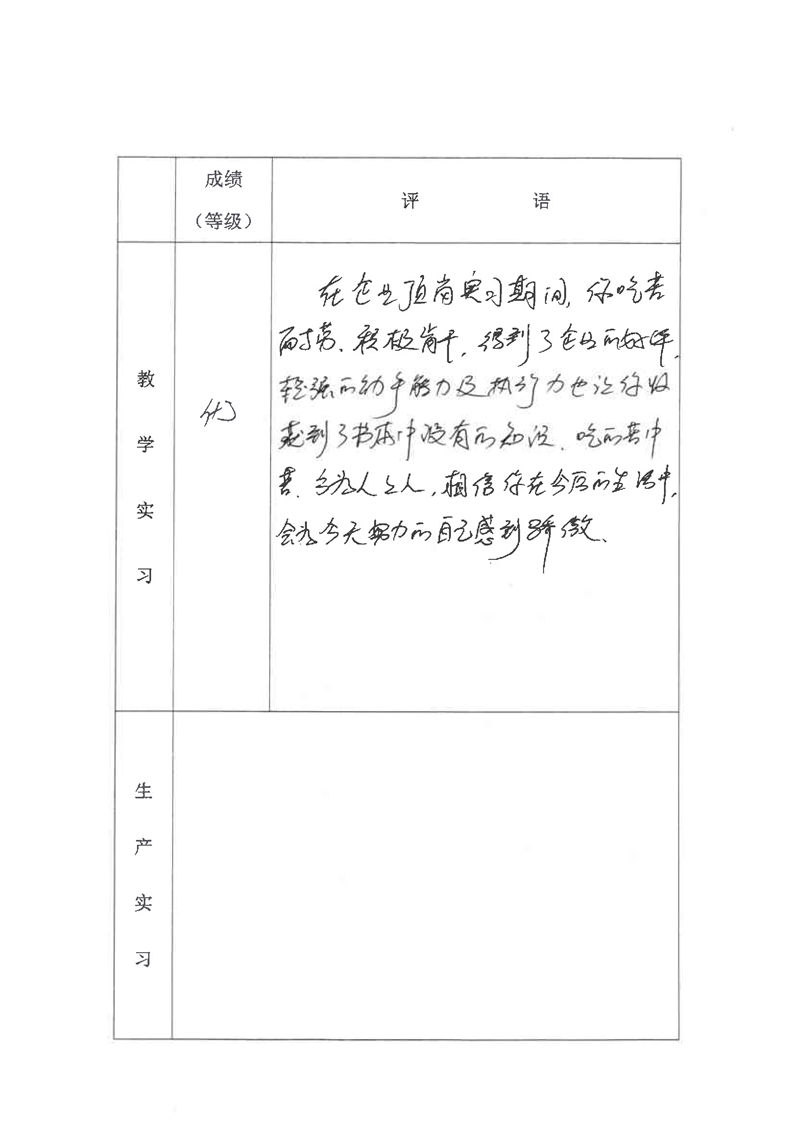 成绩
（等级）
评 语
教学实习
优
在企业顶岗实习期间，你吃苦
耐劳、积极肯干，得到了企业的好评，
较强的动手能力及执行力也让你收
获到了书本中没有的知识、吃的苦中
苦、方为人上人，相信你在今后的生活中，
会为今天努力的自己感到骄傲、
生产实习